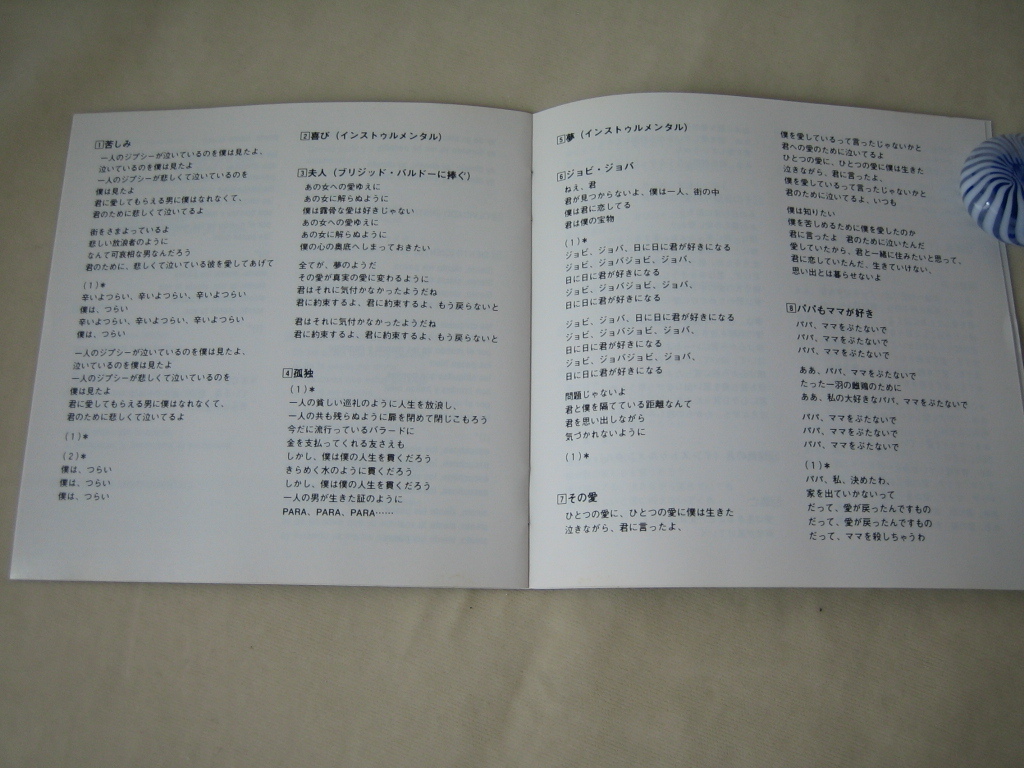 1苦しみ
一人のジプシーが泣いているのを僕は見たよ、
泣いているのを僕は見たよ
一人のジプシーが悲しくて泣いているのを
僕は見たよ
君に愛してもらえる男に僕はなれなくて、
君のために悲しくて泣いてるよ
街をさまよっているよ
悲しい放浪者のように
なんて可哀相な男なんだろう
君のために、悲しくて泣いている彼を愛してあげて
(1)*
辛いよつらい、辛いよつらい、辛いよつらい
僕は、つらい
辛いよつらい、辛いよつらい、辛いよつらい
僕は、つらい
一人のジプシーが泣いているのを僕は見たよ、
泣いているのを僕は見たよ
一人のジプシーが悲しくて泣いているのを
僕は見たよ
君に愛してもらえる男に僕はなれなくて、
君のために悲しくて泣いてるよ
(1)*
(2)*
僕は、つらい
僕は、つらい
僕は、つらい
2喜び(インストゥルメンタル)
3夫人(ブリジッド・バルドーに捧ぐ)
あの女への愛ゆえに
あの女に解らぬように
僕は露骨な愛は好きじゃない
あの女への愛ゆえに
あの女に解らぬように
僕の心の奥底へしまっておきたい
全てが、夢のようだ
その愛が真実の愛に変わるように
君はそれに気付かなかったようだね
君に約束するよ、君に約束するよ、もう戻らないと
君はそれに気付かなかったようだね
君に約束するよ、君に約束するよ、もう戻らないと
4孤独
(1)*
一人の貧しい巡礼のように人生を放浪し、
一人の共も残らぬように扉を閉めて閉じこもろう
今だに流行っているバラードに
金を支払ってくれる友さえも
しかし、僕は僕の人生を貫くだろう
きらめく水のように貫くだろう
しかし、僕は僕の人生を貫くだろう
一人の男が生きた証のように
PARA、PARA、PARA……
5夢(インストゥルメンタル)
6ジョビ・ジョバ
ねぇ、君
君が見つからないよ、僕は一人、街の中
僕は君に恋してる
君は僕の宝物
(1)*
ジョビ、ジョバ、日に日に君が好きになる
ジョビ、ジョバジョビ、ジョバ、
日に日に君が好きになる
ジョビ、ジョバジョビ、ジョバ、
日に日に君が好きになる
ジョビ、ジョバ、日に日に君が好きになる
ジョビ、ジョバジョビ、ジョバ、
日に日に君が好きになる
ジョビ、ジョバジョビ、ジョバ、
日に日に君が好きになる
問題じゃないよ
君と僕を隔てている距離なんて
君を思い出しながら
気づかれないように
(1)*
7その愛
ひとつの愛に、ひとつの愛に僕は生きた
泣きながら、君に言ったよ、
僕を愛しているって言ったじゃないかと
君への愛のために泣いてるよ
ひとつの愛に、ひとつの愛に僕は生きた
泣きながら、君に言ったよ、
僕を愛しているって言ったじゃないかと
君のために泣いてるよ、いつも
僕は知りたい
僕を苦しめるために僕を愛したのか
君に言ったよ 君のために泣いたんだ
愛していたから、君と一緒に住みたいと思って、
君に恋していたんだ、生きていけない、
思い出とは暮らせないよ
8パパもママが好き
パパ、ママをぶたないで
パパ、ママをぶたないで
パパ、ママをぶたないで
ああ、パパ、ママをぶたないで
たった一羽の雌鶏のために
ああ、私の大好きなパパ、ママをぶたないで
パパ、ママをぶたないで
パパ、ママをぶたないで
パパ、ママをぶたないで
(1)*
パパ、私、決めたわ、
家を出ていかないって
だって、愛が戻ったんですもの
だって、愛が戻ったんですもの
だって、ママを殺しちゃうわ